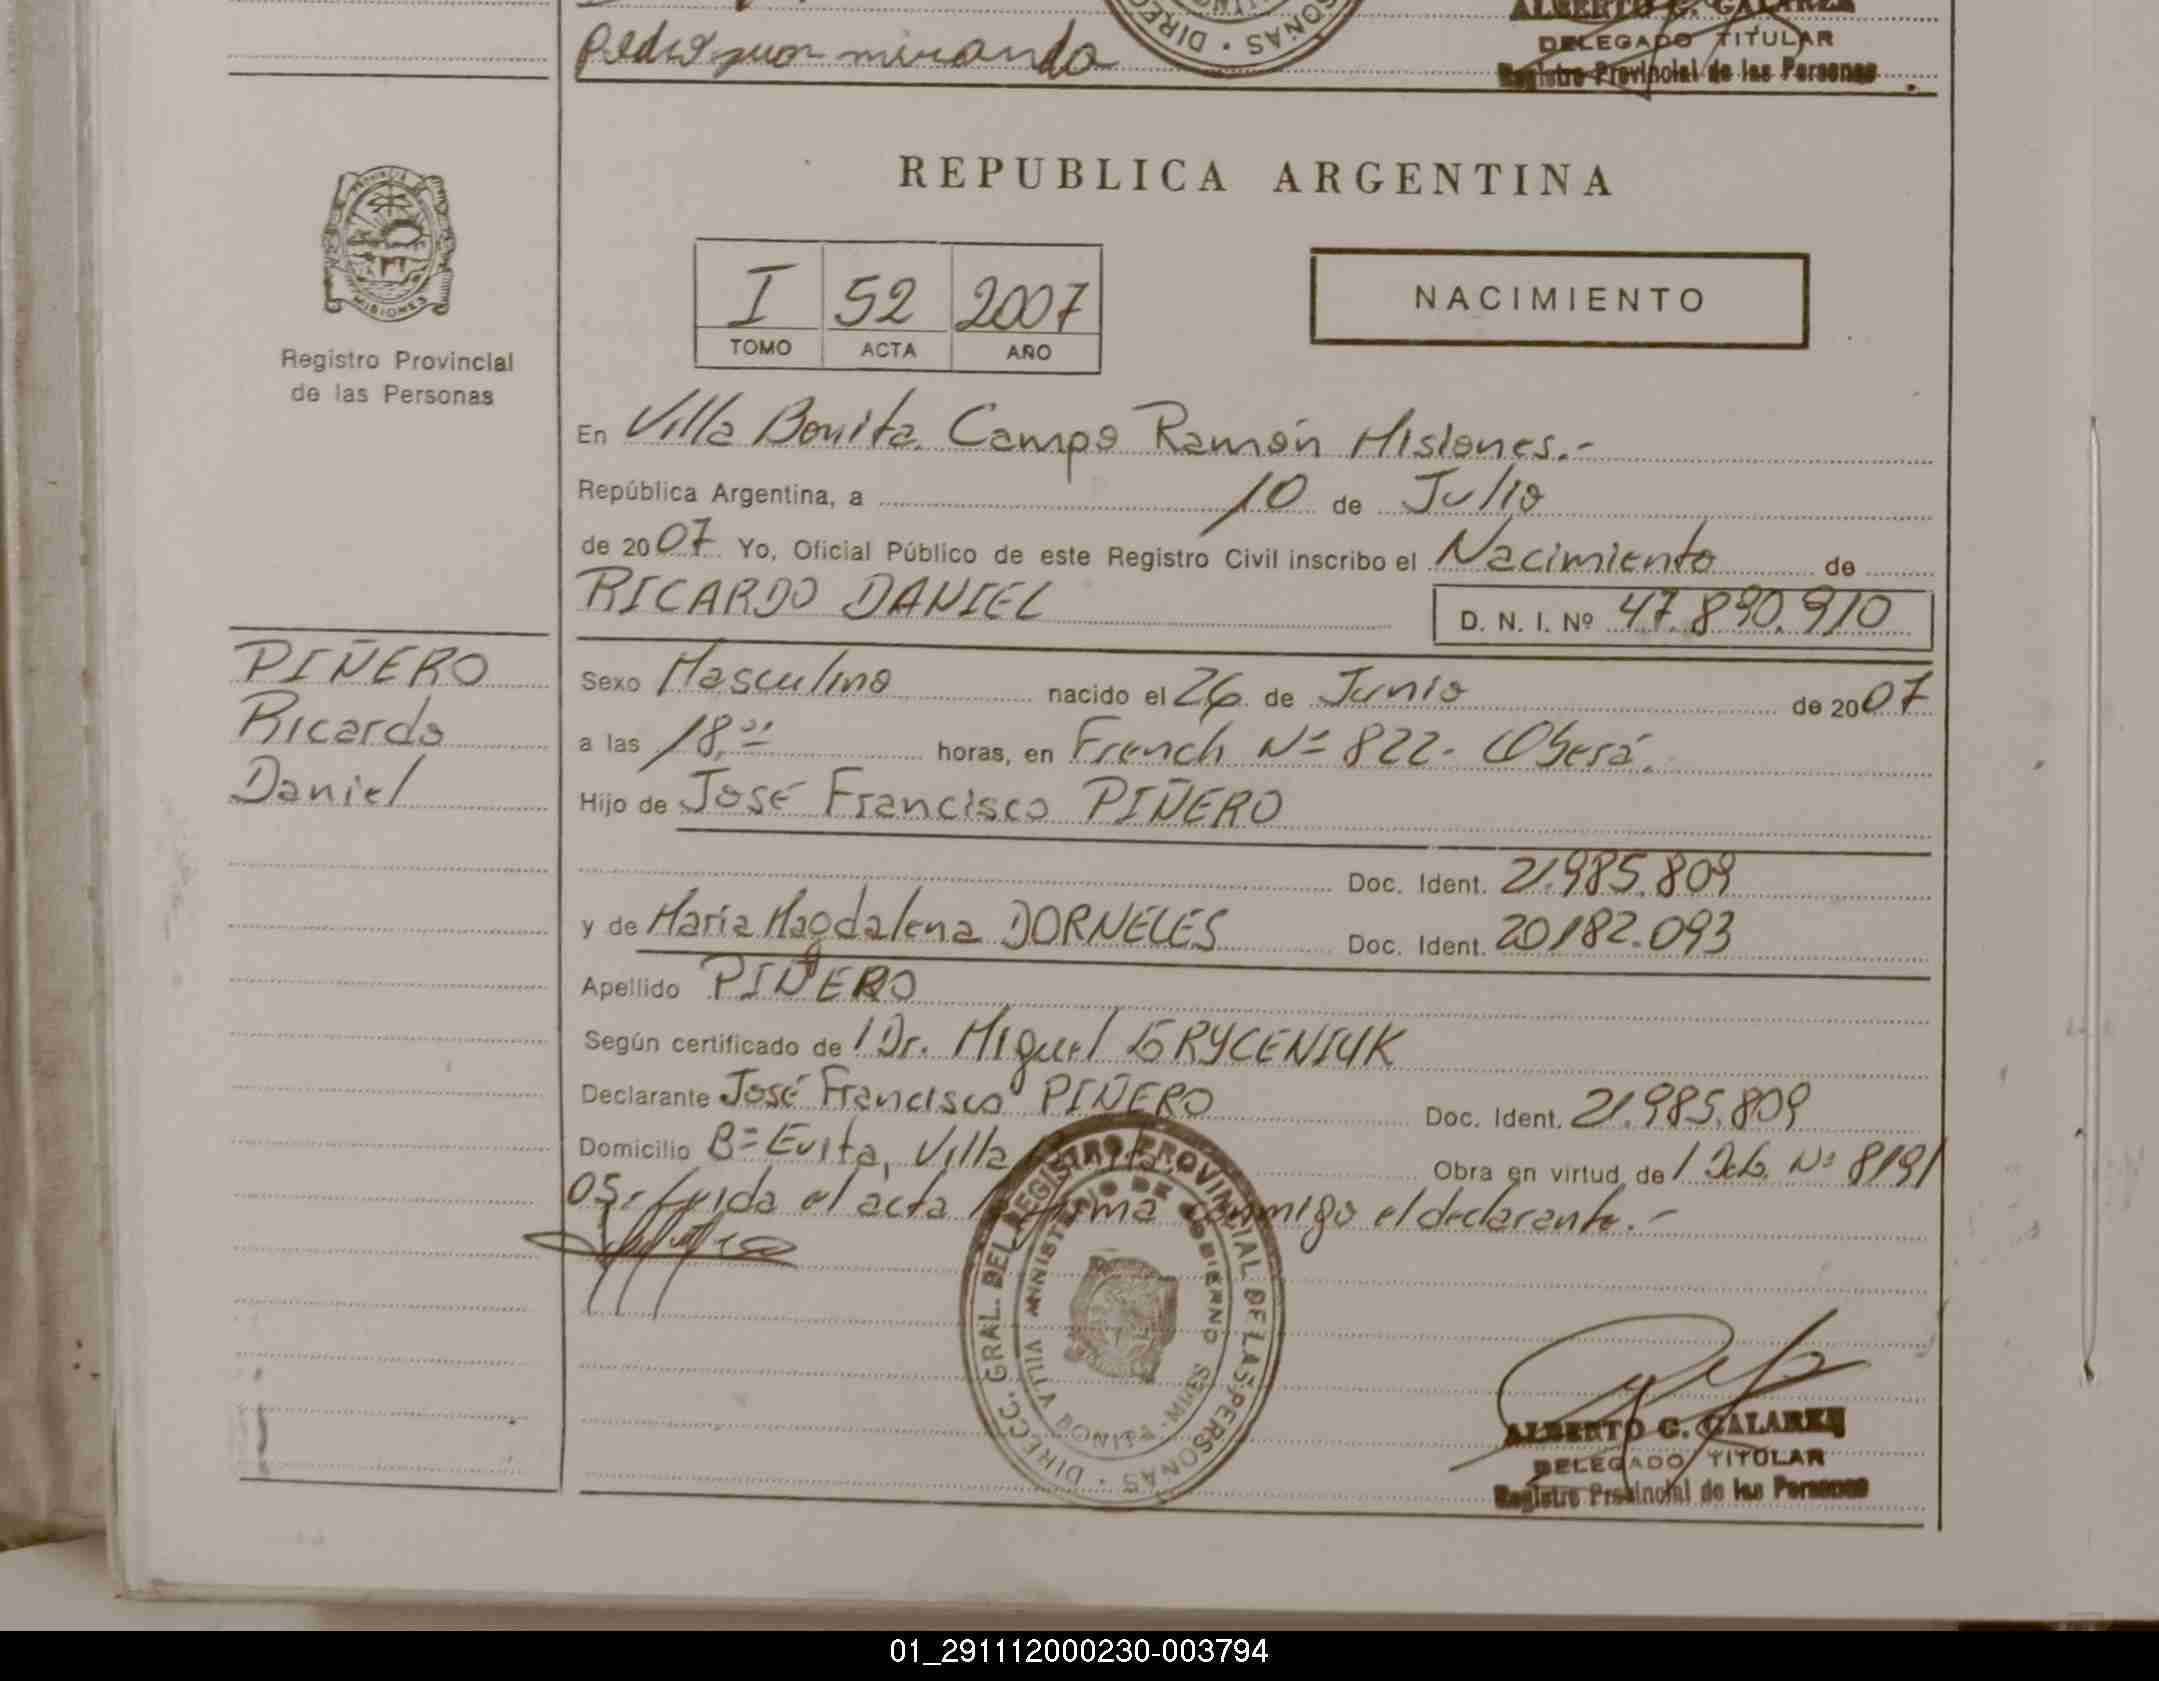 Pedro Juan miranda
DIRECC
SONAS
ALBERTO G. GALARZA
DELEGADO TITULAR
Registro Provincial de las Personas
MISIONES
Registro Provincial
de las Personas
REPUBLICA ARGENTINA
I 52 2007
TOMO ACTA AÑO
NACIMIENTO
En Villa Bonita. Campo Ramón Misiones.-
República Argentina, a 10 de Julio
de 2007 Yo, Oficial Público de este Registro Civil inscribo el Nacimiento de
RICARDO DANIEL
D. N. I. Nº 47.890.910
PIÑERO
Ricardo
Daniel
Sexo Masculino nacido el 26 de Junio de 2007
a las 18, horas, en French Nº 822- Oberá.
Hijo de José Francisco PIÑERO
Doc. Ident. 21.985.809
y de María Magdalena DORNELES Doc. Ident. 20182.093
Apellido PIÑERO
Según certificado de / Dr. Miguel GRYCENIUK
Declarante José Francisco PIÑERO Doc. Ident. 21.985.809
Domicilio Bº Evita, Villa Obra en virtud de / Dcto. Nº 8191
05. Leída el acta la firma conmigo el declarante.-
DIRECC. GRAL. DEL REGISTRO PROVINCIAL DE LAS PERSONAS
MINISTERIO DE GOBIERNO
VILLA BONITA - MNES
ALBERTO G. GALARZA
DELEGADO TITULAR
Registro Provincial de las Personas
01_291112000230-003794